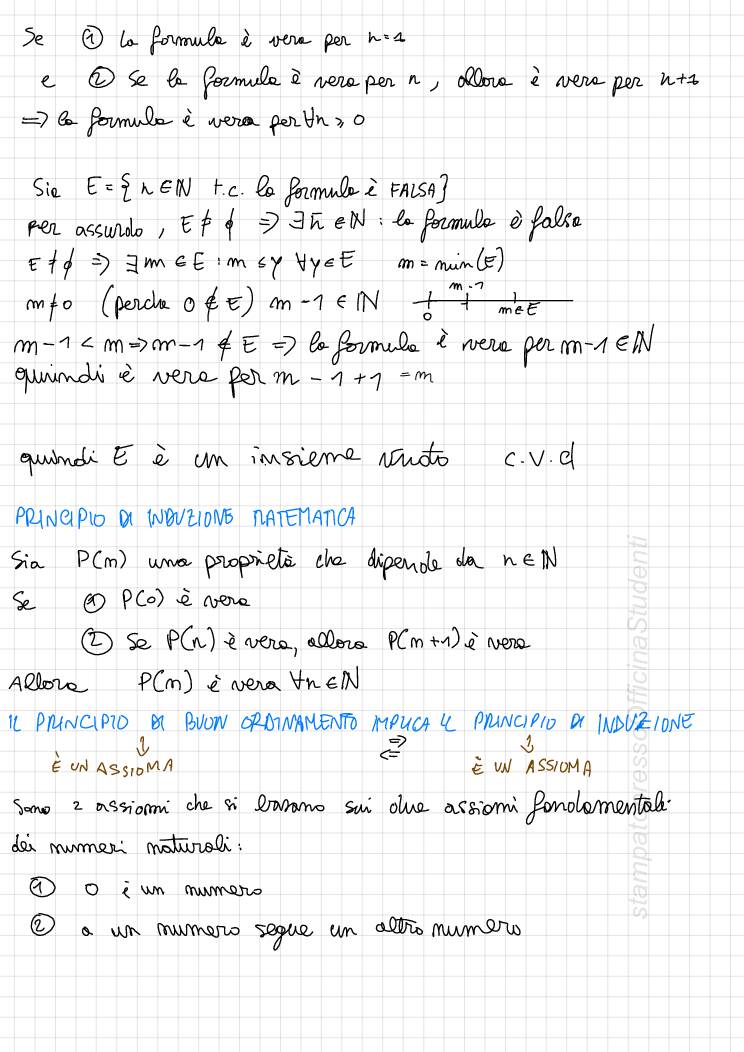 Se ① la formula è vera per n=1
e ② Se la formula è vera per n, allora è vera per n+1
=> la formula è vera per ∀n ≥ 0
Sia E = { n ∈ ℕ t.c. la formula è FALSA}
Per assurdo, E ≠ ∅ => ∃ n̄ ∈ ℕ : la formula è falsa
E ≠ ∅ => ∃ m ∈ E : m ≤ y ∀y ∈ E m = min(E)
m ≠ 0 (perché 0 ∉ E) m - 1 ∈ ℕ
m-1
0 m ∈ E
m - 1 < m => m - 1 ∉ E => la formula è vera per m-1 ∈ ℕ
quindi è vera per m - 1 + 1 = m
quindi E è un insieme vuoto c.v.d
PRINCIPIO DI INDUZIONE MATEMATICA
Sia P(n) una proprietà che dipende da n ∈ ℕ
Se ① P(0) è vera
② Se P(n) è vera, allora P(n+1) è vera
Allora P(n) è vera ∀n ∈ ℕ
IL PRINCIPIO DI BUON ORDINAMENTO IMPLICA IL PRINCIPIO DI INDUZIONE
↓ => <= ↓
È UN ASSIOMA È UN ASSIOMA
Sono 2 assiomi che si basano sui due assiomi fondamentali
dei numeri naturali:
① 0 è un numero
② a un numero segue un altro numero
stampato presso OfficinaStudenti